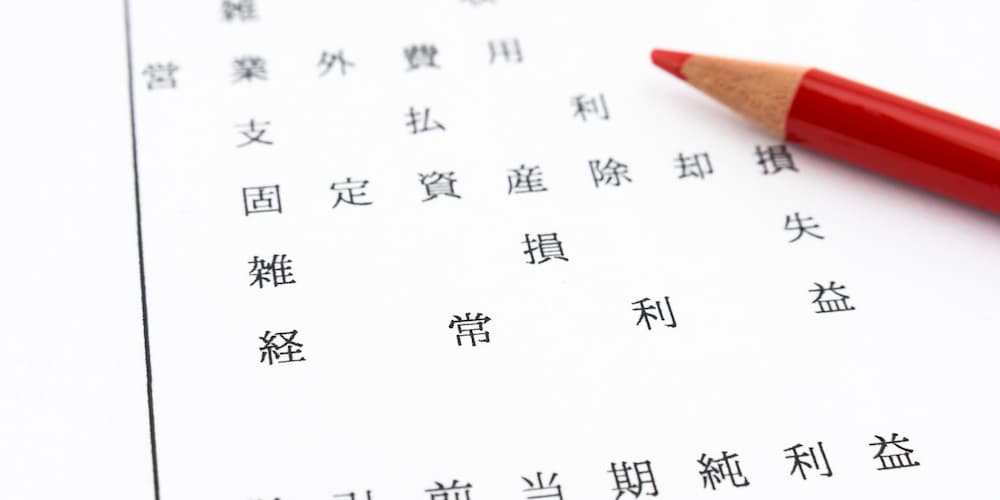 雑
営業外費用
支払利
固定資産除却損
雑損失
経常利益
引前当期純利益